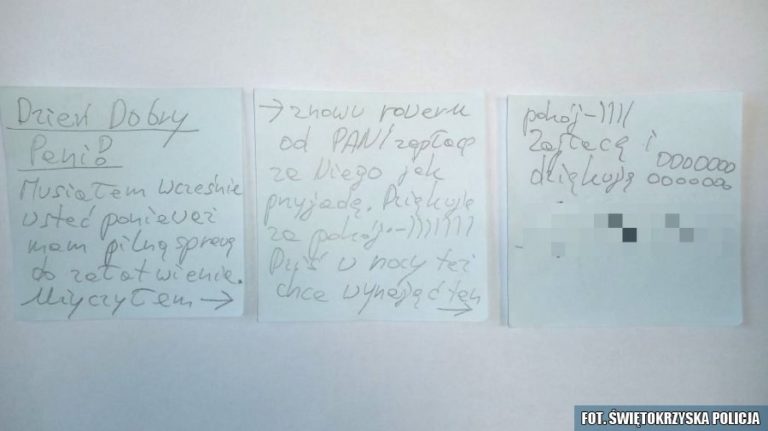 Dzień Dobry
Pani?
Musiałem wcześnie
wsteć ponieważ
mam pilną sprawę
do załatwienie.
Użyczyłem →
→ znowu roveru
od PANI zapłacę
za Niego jak
przyjadę. Dziękuję
za pokój.-)))))))
Dziś w nocy też
chce wynająć ten
→
pokój-))))
Zapłacę i
dziękuję
FOT. ŚWIĘTOKRZYSKA POLICJA